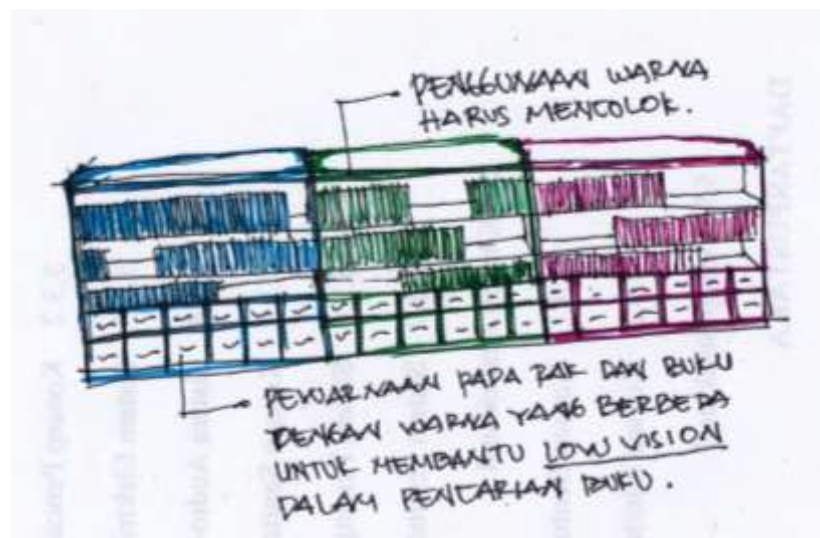 PENGGUNAAN WARNA
HARUS MENCOLOK.
PEWARNAAN PADA RAK DAN BUKU
DENGAN WARNA YANG BERBEDA
UNTUK MEMBANTU LOW VISION
DALAM PENCARIAN BUKU.